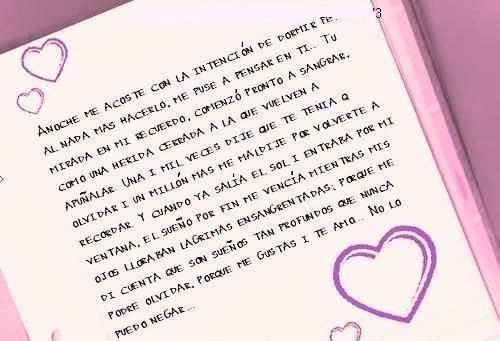 Anoche me acoste con la intención de dormir pe..
al nada mas hacerlo, me puse a pensar en ti.. Tu
mirada en mi recuerdo, comenzó pronto a sangrar,
como una herida cerrada a la que vuelven a
apuñalar. Una i mil veces dije que te tenia q
olvidar i un millón mas me maldije por volverte a
recordar. Y cuando ya salía el sol i entraba por mi
ventana, el sueño por fin me vencía mientras mis
ojos lloraban lágrimas ensangrentadas; porque me
di cuenta que son sueños tan profundos que nunca
podre olvidar, porque me gustas i te amo... No lo
puedo negar...